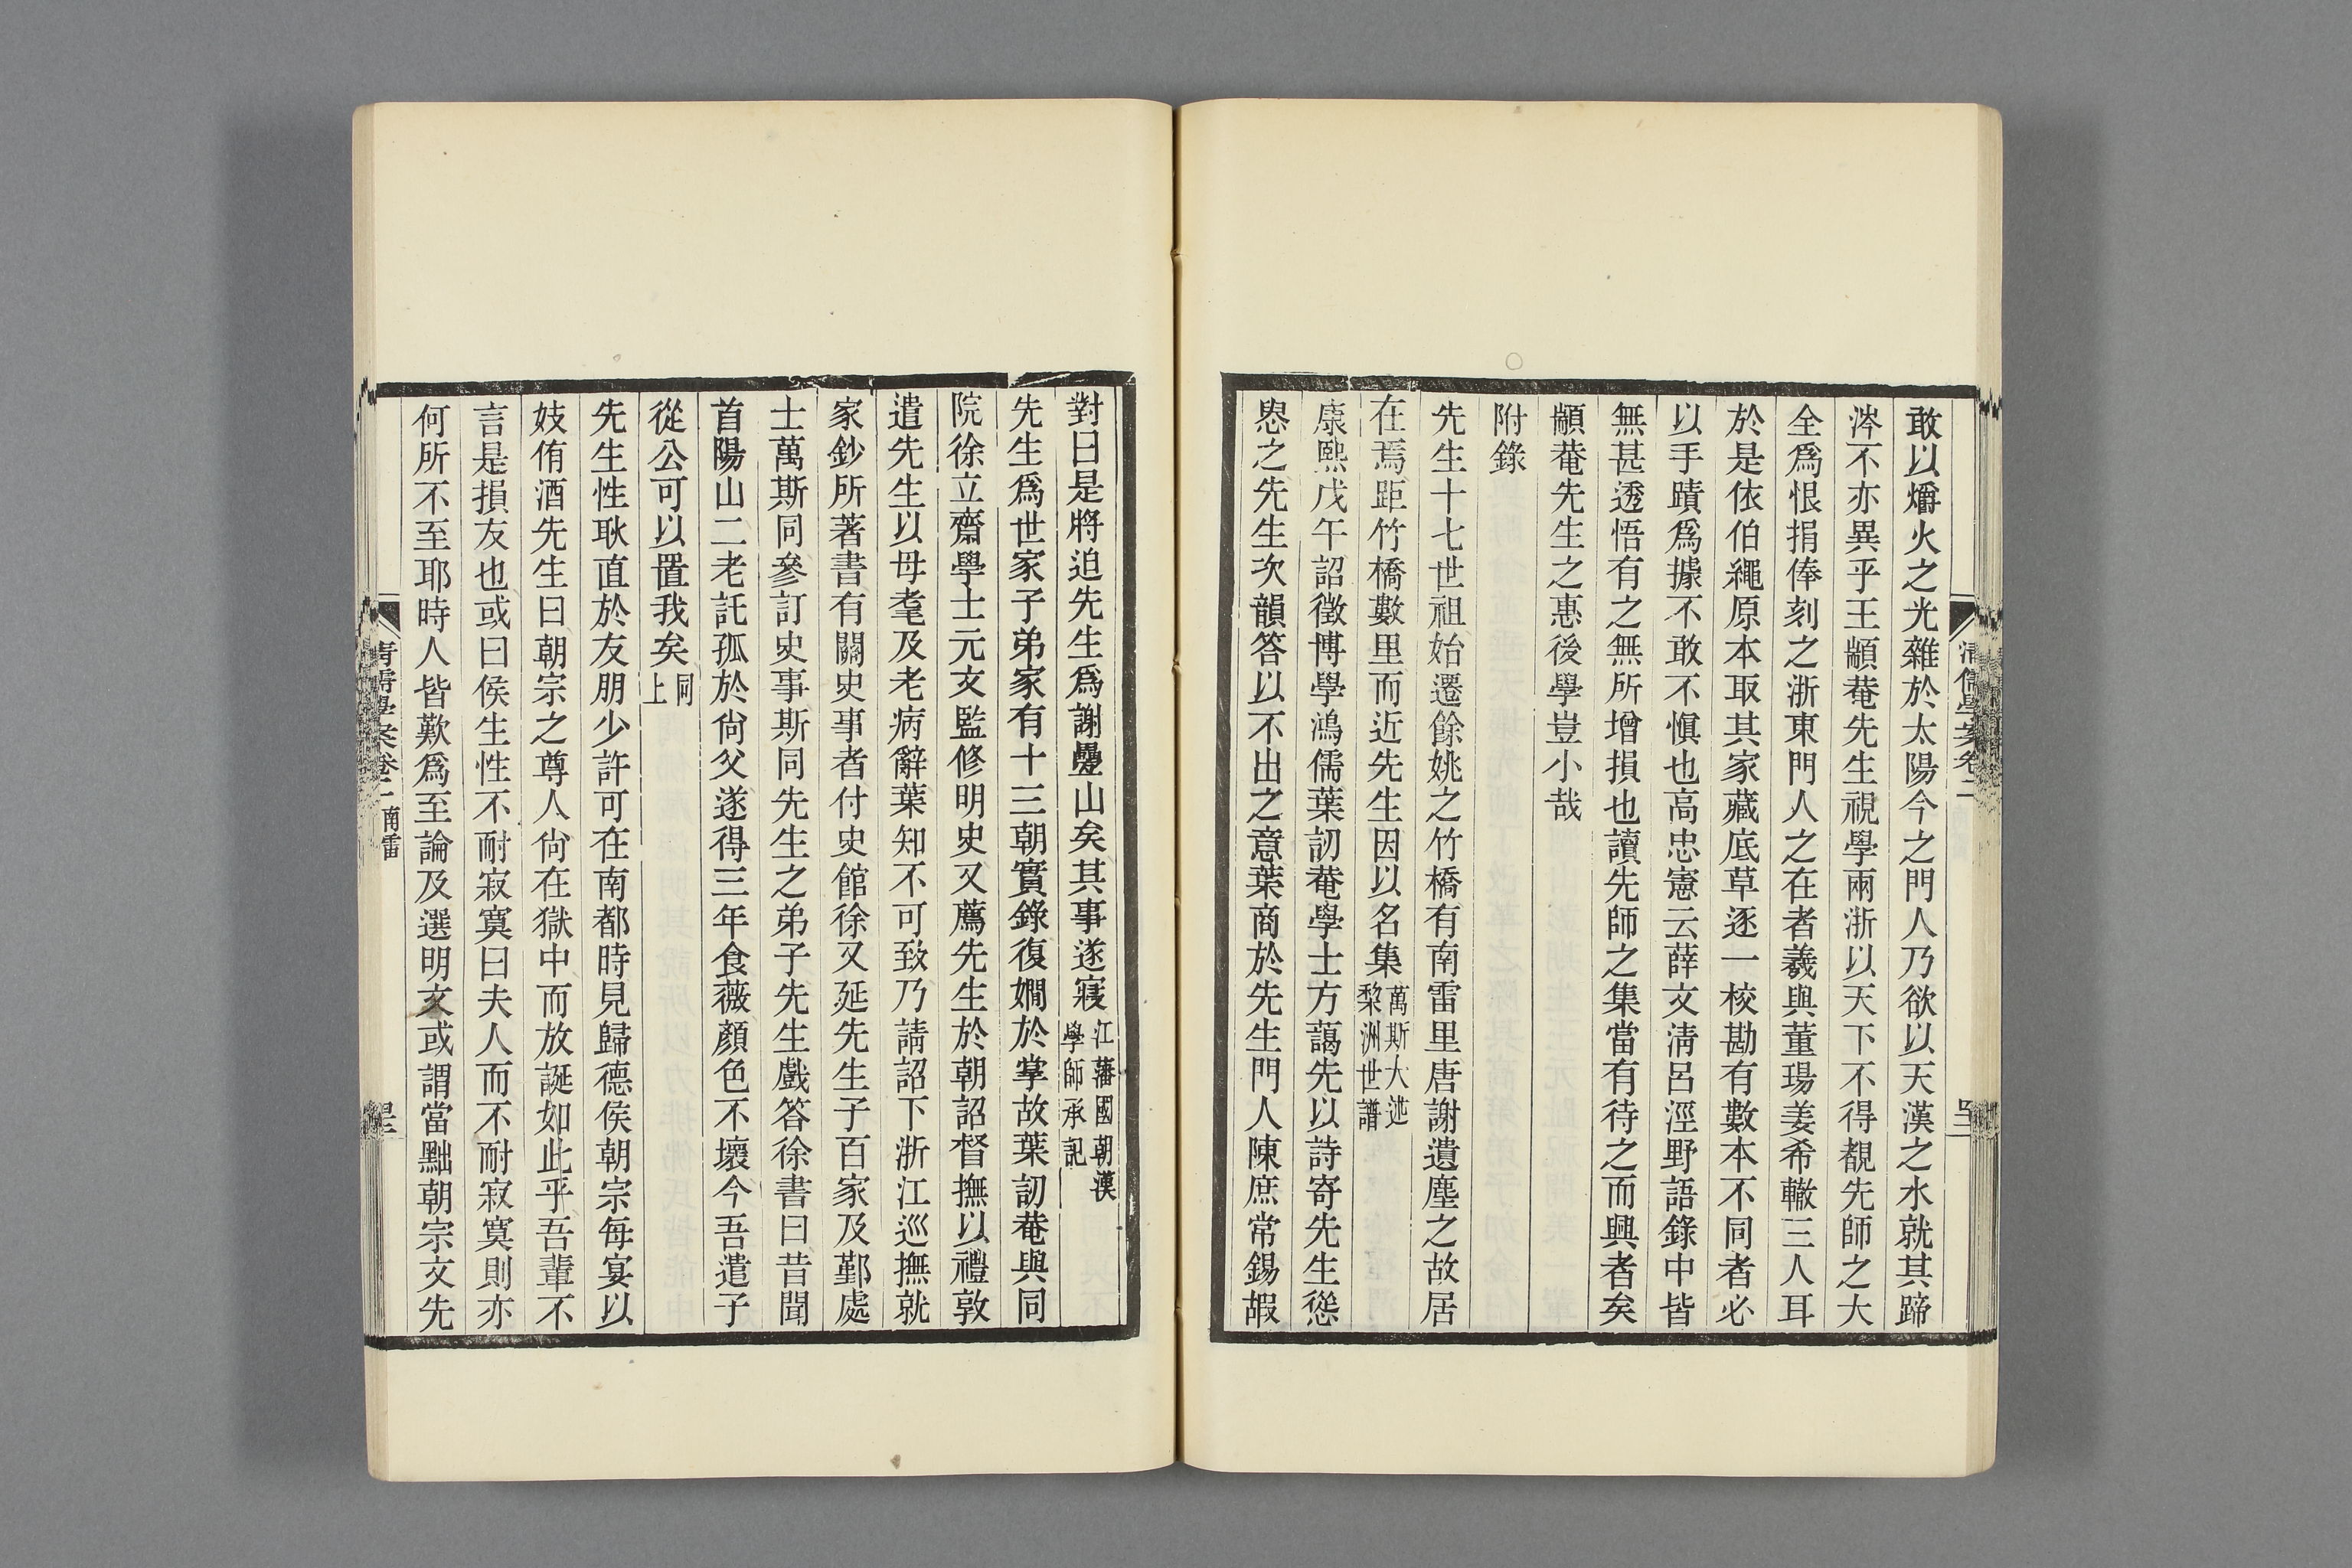 敢以爝火之光雜於太陽今之門人乃欲以天漢之水就其蹄
涔不亦異乎王顓菴先生視學兩浙以天下不得覩先師之大
全爲恨捐俸刻之浙東門人之在者羲與董瑒姜希轍三人耳
於是依伯繩原本取其家藏底草逐一校勘有數本不同者必
以手蹟爲據不敢不愼也高忠憲云薛文淸呂涇野語錄中皆
無甚透悟有之無所增損也讀先師之集當有待之而興者矣
顓菴先生之惠後學豈小哉
附錄
先生十七世祖始遷餘姚之竹橋有南雷里唐謝遺塵之故居
在焉距竹橋數里而近先生因以名集萬斯大述黎洲世譜
康熙戊午詔徵博學鴻儒葉訒菴學士方藹先以詩寄先生慫
恖之先生次韻答以不出之意葉商於先生門人陳庶常錫嘏
對曰是將迫先生爲謝疊山矣其事遂寢江藩國朝漢學師承記
先生爲世家子弟家有十三朝實錄復嫺於掌故葉訒菴與同
院徐立齋學士元文監修明史又薦先生於朝詔督撫以禮敦
遣先生以母耄及老病辭葉知不可致乃請詔下浙江巡撫就
家鈔所著書有關史事者付史館徐又延先生子百家及鄞處
士萬斯同參訂史事斯同先生之弟子先生戲答徐書曰昔聞
首陽山二老託孤於尙父遂得三年食薇顏色不壞今吾遣子
從公可以置我矣同上
先生性耿直於友朋少許可在南都時見歸德侯朝宗每宴以
妓侑酒先生曰朝宗之尊人尙在獄中而放誕如此乎吾輩不
言是損友也或曰侯生性不耐寂寞曰夫人而不耐寂寞則亦
何所不至耶時人皆歎爲至論及選明文或謂當黜朝宗文先
清儒學案卷二 南雷